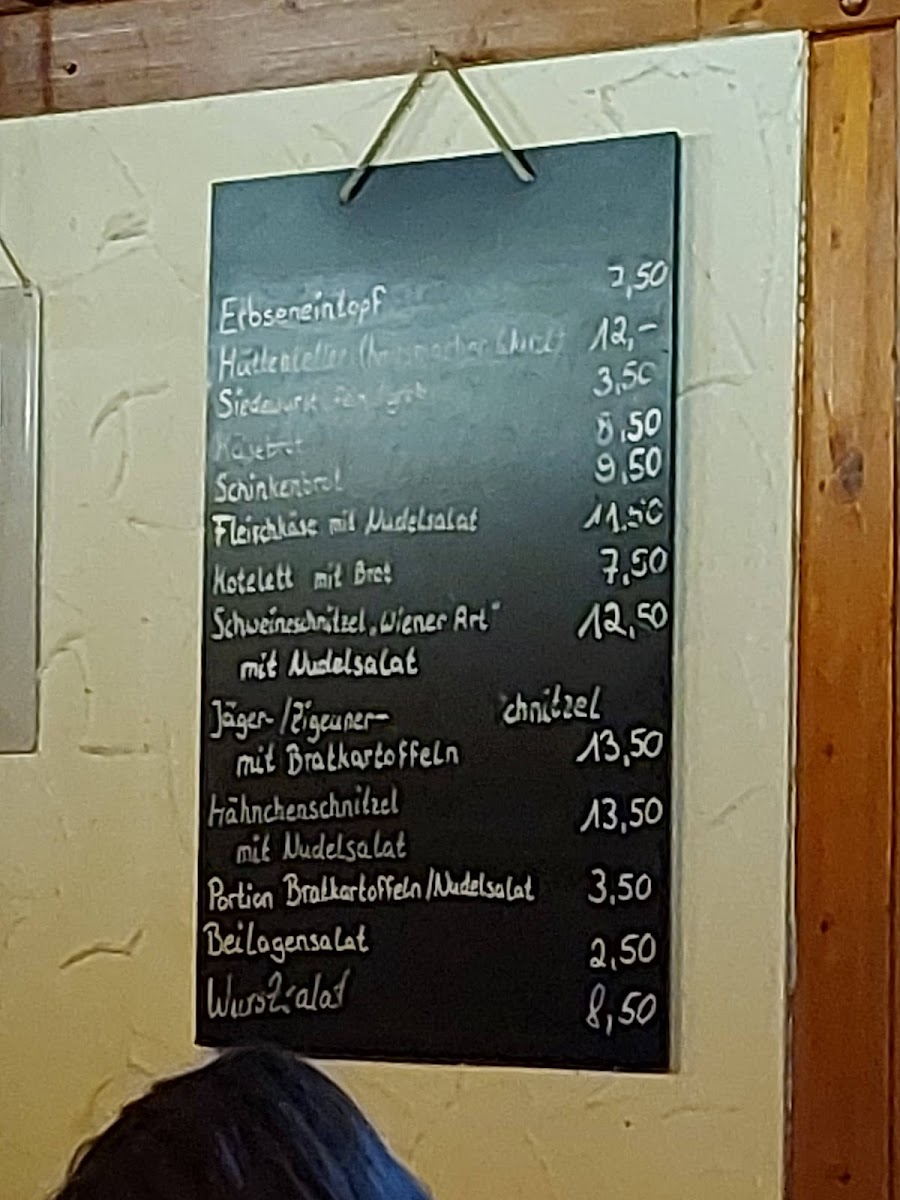 Erbseneintopf 7,50
Hüttenteller 12,-
Siedewurst 3,50
Käsebrot 8,50
Schinkenbrot 9,50
Fleischkäse mit Nudelsalat 11.50
Kotelett mit Brot 7,50
Schweineschnitzel „Wiener Art" 12,50
mit Nudelsalat
Jäger-/Zigeuner- chnitzel
mit Bratkartoffeln 13,50
Hähnchenschnitzel 13,50
mit Nudelsalat
Portion Bratkartoffeln/Nudelsalat 3,50
Beilagensalat 2,50
Wurstsalat 8,50